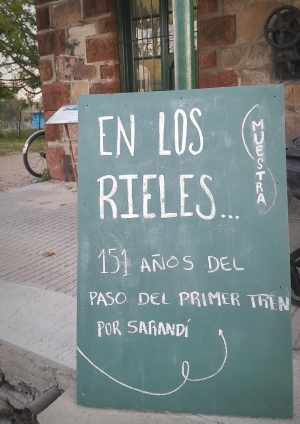 EN LOS
RIELES...
MUESTRA
151 AÑOS DEL
PASO DEL PRIMER TREN
POR SARANDÍ